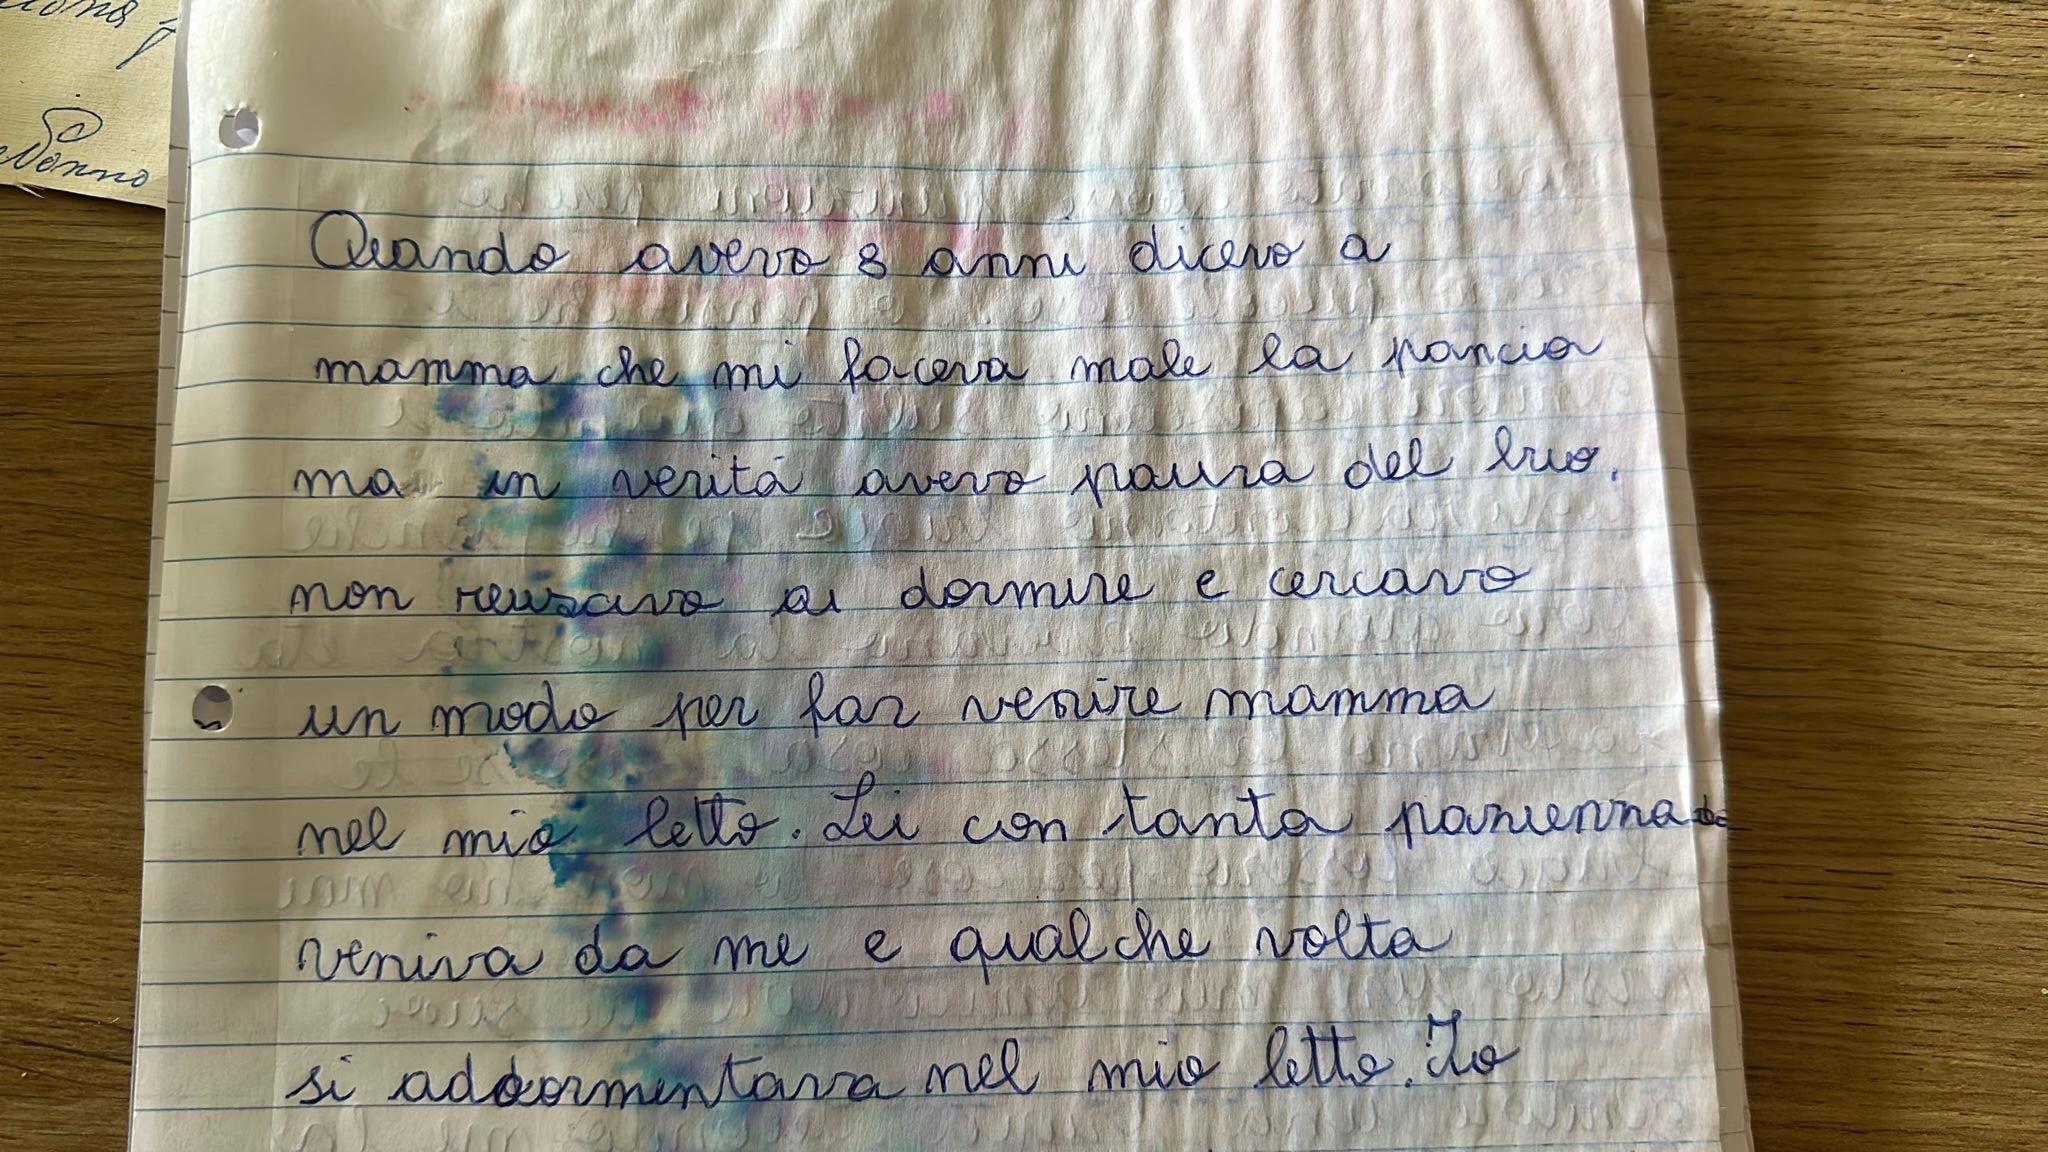 Nonno
Quando avevo 8 anni dicevo a
mamma che mi faceva male la pancia
ma in verità avevo paura del buio,
non reuscivo a dormire e cercavo
un modo per far venire mamma
nel mio letto. Lei con tanta pazienza
veniva da me e qualche volta
si addormentava nel mio letto. Io